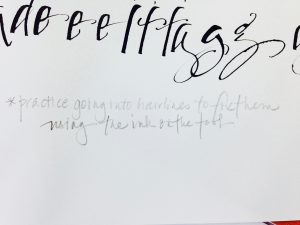 ndeeefffaggg
*practice going into hairlines to fix them
using the ink & the tool